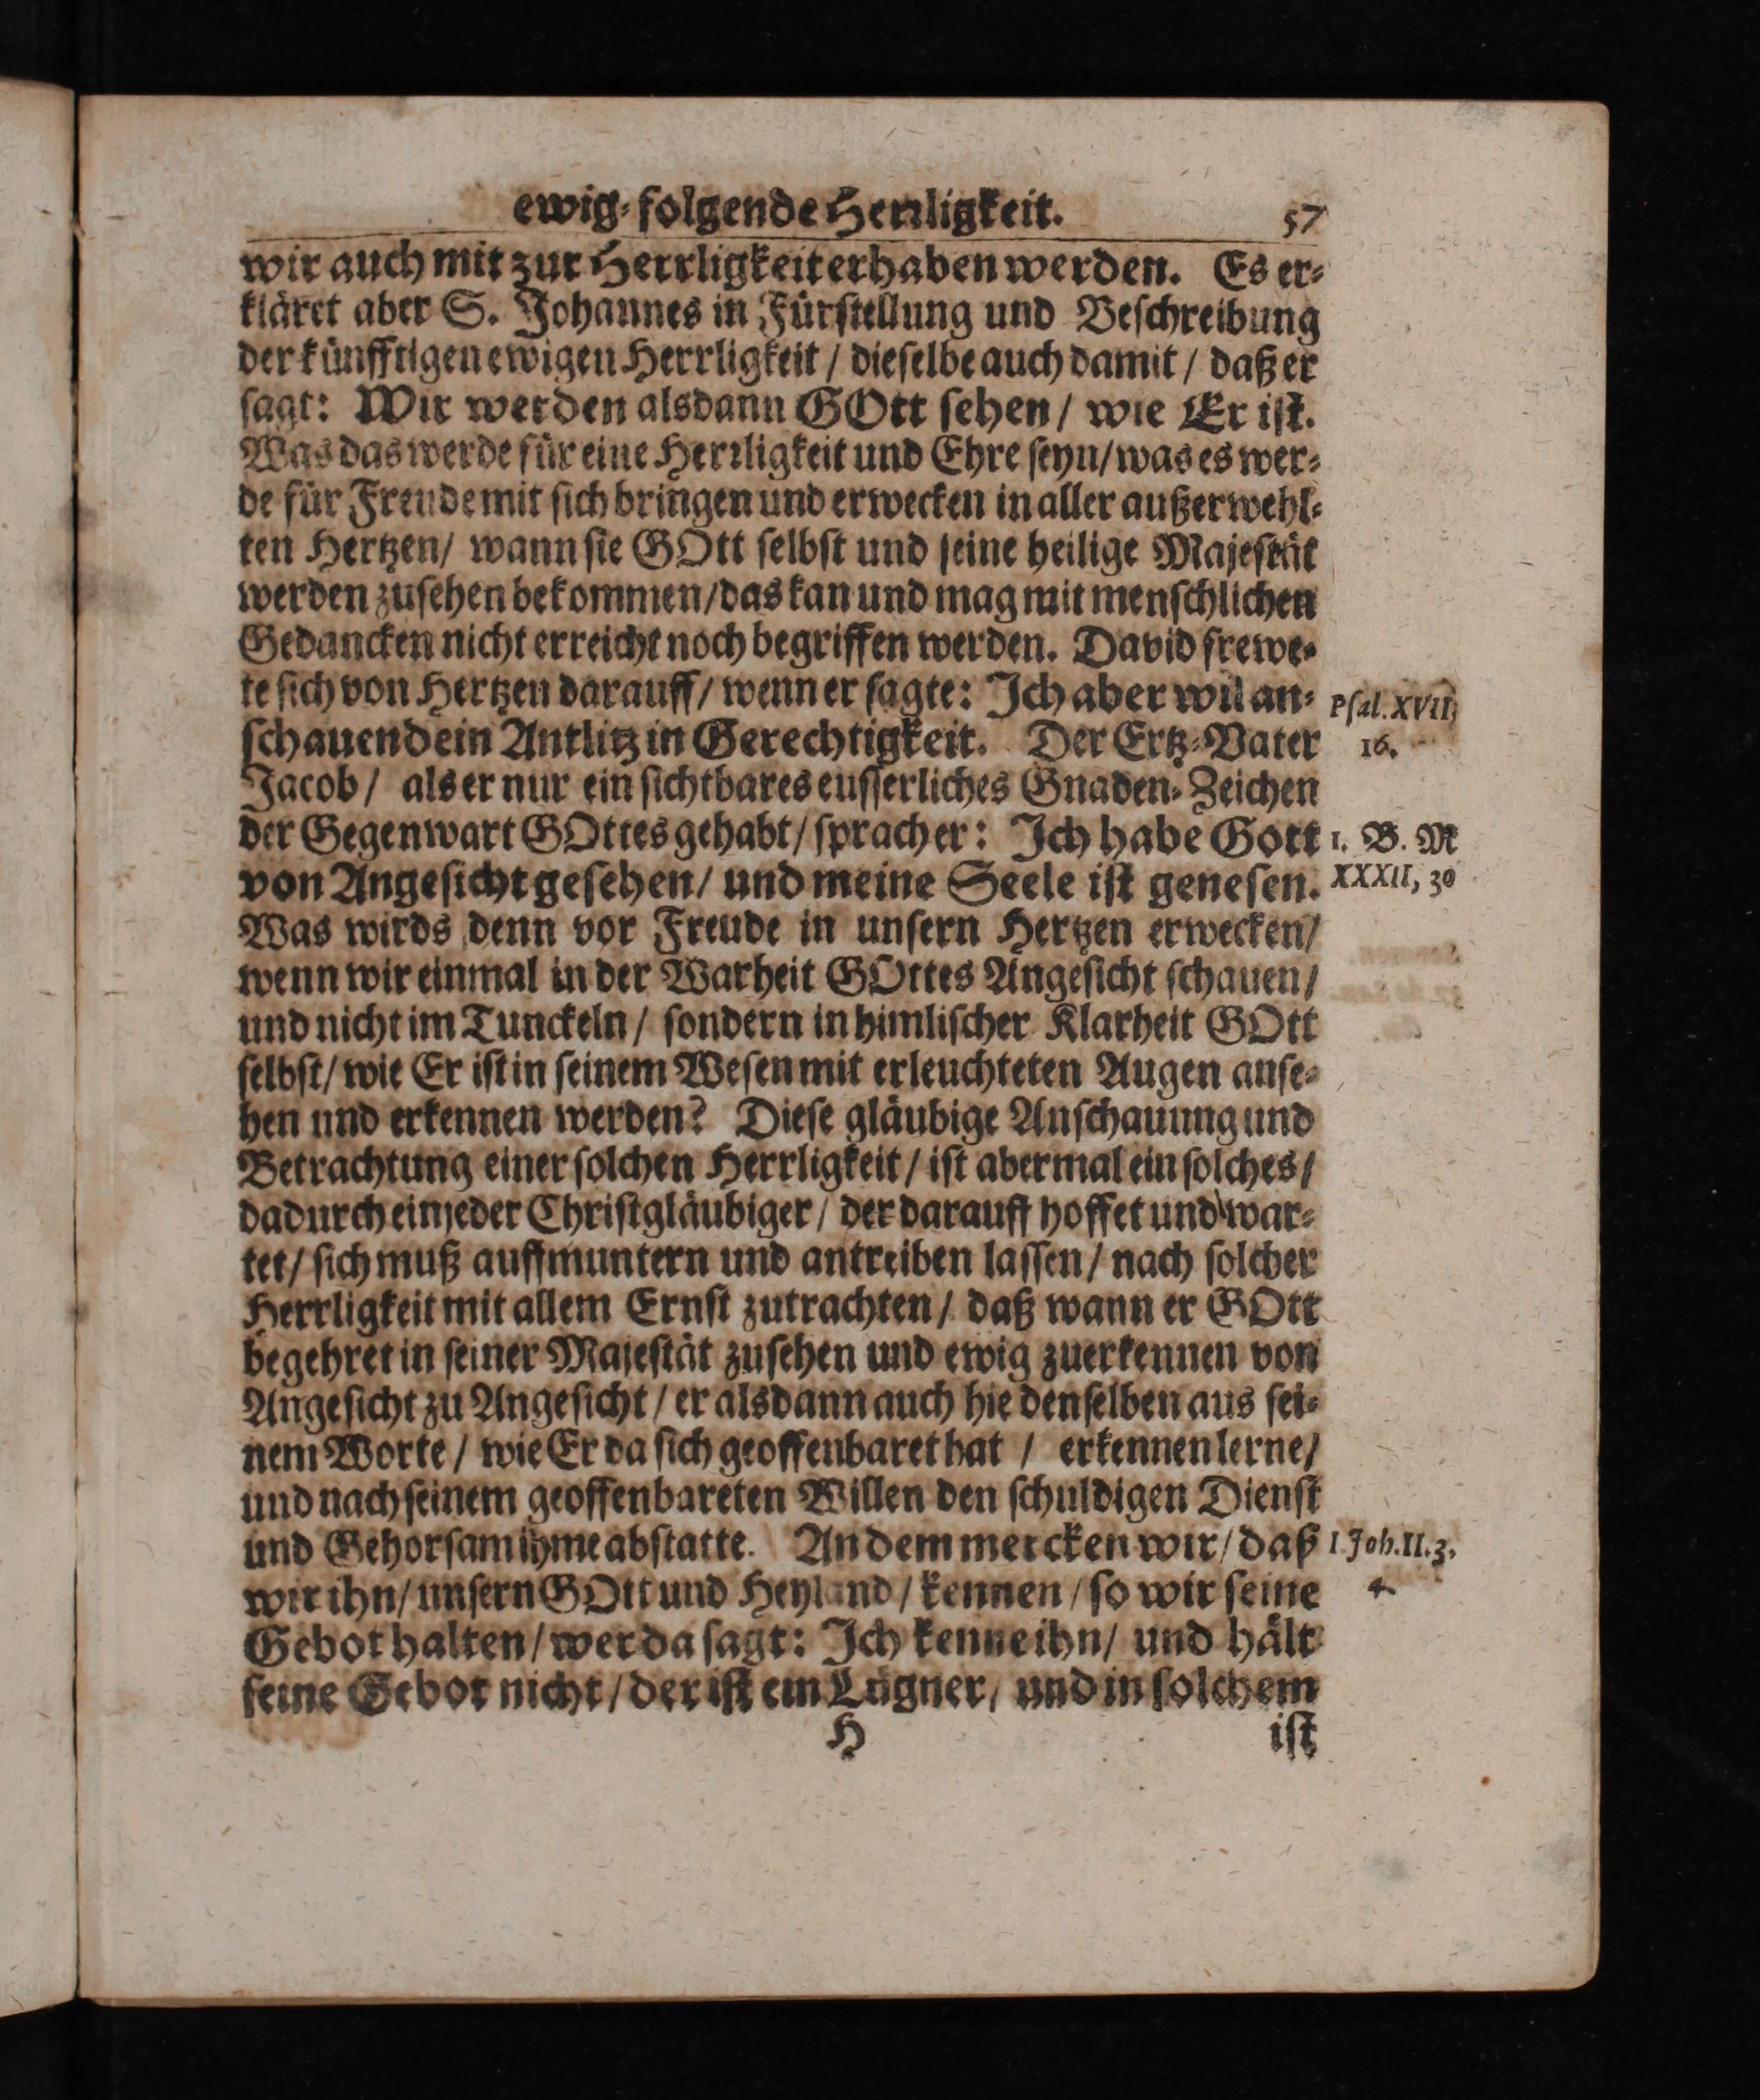 ewig-folgende Herrligkeit. 57
wir auch mit zur Herrligkeit erhaben werden. Es er-
kläret aber S. Johannes in Fürstellung und Beschreibung
der künfftigen ewigen Herrligkeit / dieselbe auch damit / daß er
sagt: Wir werden alsdann GOtt sehen / wie Er ist.
Was das werde für eine Herrligkeit und Ehre seyn / was es wer-
de für Freude mit sich bringen und erwecken in aller außerwehl-
ten Hertzen / wann sie GOtt selbst und seine heilige Majestät
werden zusehen bekommen / das kan und mag mit menschlichen
Gedancken nicht erreicht noch begriffen werden. David frewe-
te sich von Hertzen darauff / wenn er sagte: Ich aber wil an-
schauen dein Antlitz in Gerechtigkeit. Der Ertz-Vater
Psal. XVII,
16.
Jacob / als er nur ein sichtbares eusserliches Gnaden-Zeichen
der Gegenwart GOttes gehabt / sprach er: Ich habe Gott
von Angesicht gesehen / und meine Seele ist genesen.
1. B. M
XXXII, 30
Was wirds denn vor Freude in unsern Hertzen erwecken /
wenn wir einmal in der Warheit GOttes Angesicht schauen /
und nicht im Tunckeln / sondern in himlischer Klarheit GOtt
selbst / wie Er ist in seinem Wesen mit erleuchteten Augen anse-
hen und erkennen werden? Diese gläubige Anschauung und
Betrachtung einer solchen Herrligkeit / ist abermal ein solches /
dadurch ein jeder Christgläubiger / der darauff hoffet und war-
tet / sich muß auffmuntern und antreiben lassen / nach solcher
Herrligkeit mit allem Ernst zutrachten / daß wann er GOtt
begehret in seiner Majestät zusehen und ewig zuerkennen von
Angesicht zu Angesicht / er alsdann auch hie denselben aus sei-
nem Worte / wie Er da sich geoffenbaret hat / erkennen lerne /
und nach seinem geoffenbareten Willen den schuldigen Dienst
und Gehorsam ihme abstatte. An dem mercken wir / daß
wir ihn / unsern GOtt und Heyland / kennen / so wir seine
1. Joh. II. 3.
4.
Gebot halten / wer da sagt: Ich kenne ihn / und hält
seine Gebot nicht / der ist ein Lügner / und in solchem
H ist